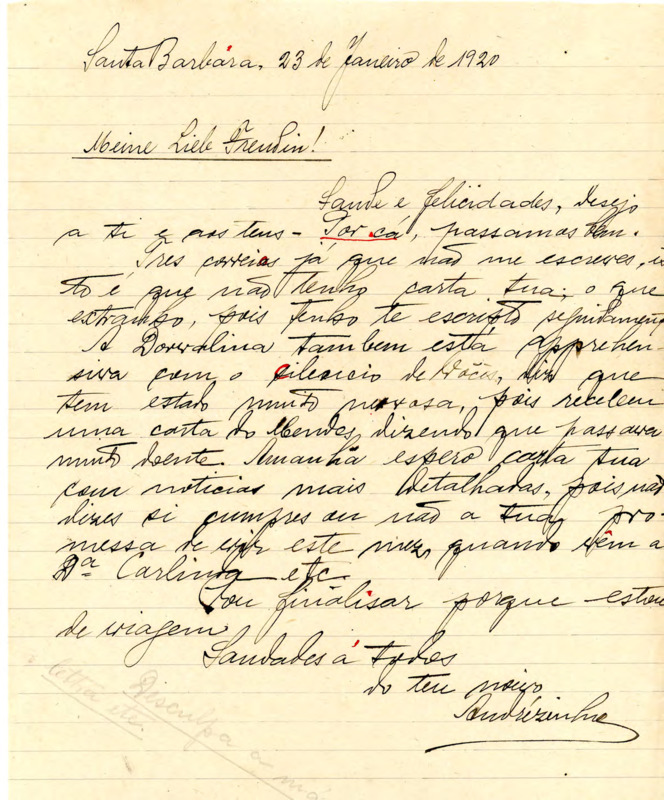 Santa Barbára, 23 de Janeiro de 1920
Meine Lieb Freudin!
Saude e felicidades, desejo
a ti e aos teus - Por cá, passamos bem.
Tres correios já que não me escreves, is
to é que não tenho carta tua, o que
extranho, pois tenho te escripto seguidamente
A Dorvalina tambem está apprehen-
siva com o silencio de Vocês, diz que
tem estado muito nervosa, pois recebeu
uma carta do Mendes, dizendo que passava
muito doente. Amanhã espero carta tua
com noticias mais detalhadas, pois não
dizes si cumpres ou não a tua pro-
messa de vir este mez, quando vêm a
Dª Carlinda etc.
Vou finalisar porque estou
de viagem
Saudades á todos
do teu noivo
Andrézinho
Desculpa a má
letra etc.